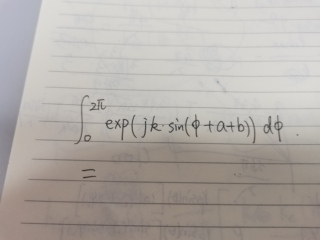 ∫₀^{2π} exp(jk·sin(ϕ+a+b)) dϕ.
=